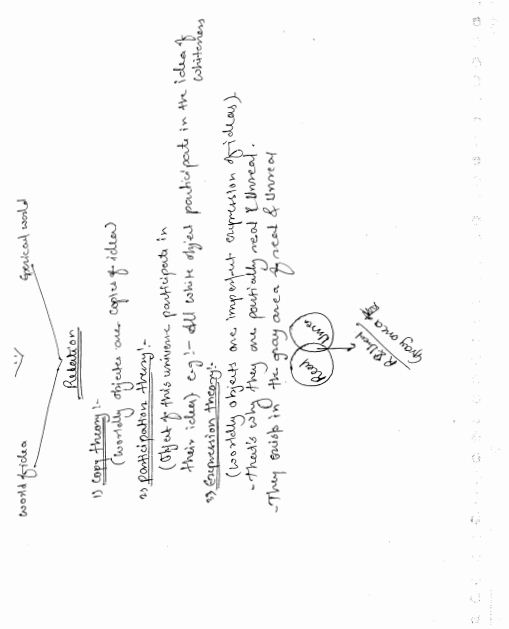 world of idea
Emprical world
Relation
1) Copy theory:-
(worldly objects are copies of idea)
2) participation theory:-
(Object of this universe participate in
their idea) e.g:- All white object participate in the idea of
whiteness
3) Expression theory:-
(worldly objects are imperfect expression of ideas).
- That's why they are partially real & Unreal.
- They exisp in the gray area of real & Unreal
Real
Unreal
R & Unreal
Gray area